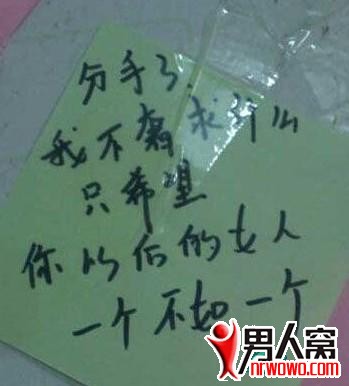 分手了.
我不奢求什么
只希望
你以后的女人
一个不如一个
男人窝
nrwowo.com